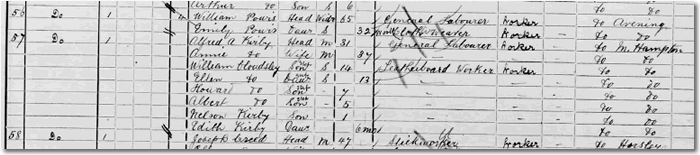 Arthur Do Son S 6 Do Do
56 Do 1 William Pours Head Widr 65 General Labourer Worker Do Avening
Emily Pours Daur S 32 Cloth Weaver Worker Do Do
57 Do 1 Alfred A Kirby Head M 31 General Labourer Worker Do M. Hampton
Annie Do Wife M 37 Do Do
William Cloudsley Son S 14 Leatherboard Worker Worker Do Do
Ellen Do Daur S 13 Do Do
Howard Do Son - 7 Do Do
Albert Do Son - 5 Do Do
Nelson Kirby Son 1 Do Do
Edith Kirby Daur 6 mos Do Do
58 Do 1 Joseph Head M 47 Stickworker Worker Do Horsley